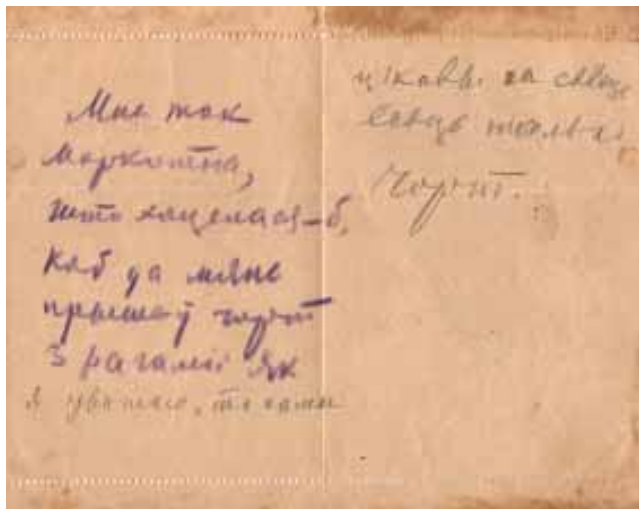 Мне так
маркотна,
што хацелася-б,
каб да мяне
прышоў чорт
з рагамі. Як
я уважаю, то самы
цікавы. на свеце
ёсьць толькі
Чорт.